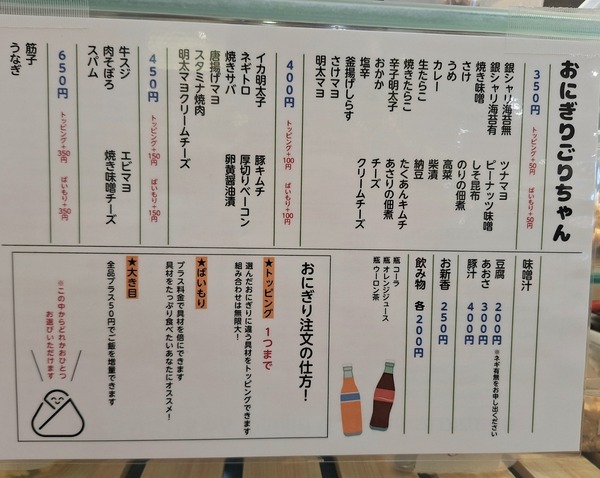 おにぎりごりちゃん
350円
トッピング+50円
ぱいもり+50円
銀シャリ海苔無
銀シャリ海苔有
焼き味噌
さけ
うめ
カレー
生たらこ
焼きたらこ
辛子明太子
おかか
塩辛
釜揚げしらす
さけマヨ
明太マヨ
ツナマヨ
ピーナッツ味噌
しそ昆布
のりの佃煮
高菜
柴漬
納豆
たくあんキムチ
あさりの佃煮
チーズ
クリームチーズ
400円
トッピング+100円
ぱいもり+100円
イカ明太子
ネギトロ
焼きサバ
唐揚げマヨ
スタミナ焼肉
明太マヨクリームチーズ
豚キムチ
厚切りベーコン
卵黄醤油漬
450円
トッピング+150円
ぱいもり+150円
牛スジ
肉そぼろ
スパム
エビマヨ
焼き味噌チーズ
650円
トッピング+350円
ぱいもり+350円
筋子
うなぎ
味噌汁
豆腐 200円
※ネギ有無をお申し出ください
あおさ 300円
豚汁 400円
お新香 250円
飲み物 各200円
瓶 コーラ
瓶 オレンジジュース
瓶 ウーロン茶
おにぎり注文の仕方！
★トッピング 1つまで
選んだおにぎりに違う具材をトッピングできます
組み合わせは無限大！
★ぱいもり
プラス料金で具材を倍にできます
具材をたっぷり食べたいあなたにオススメ！
★大き目
全品プラス50円でご飯を増量できます
※この中からどれかおひとつ
お選びいただけます